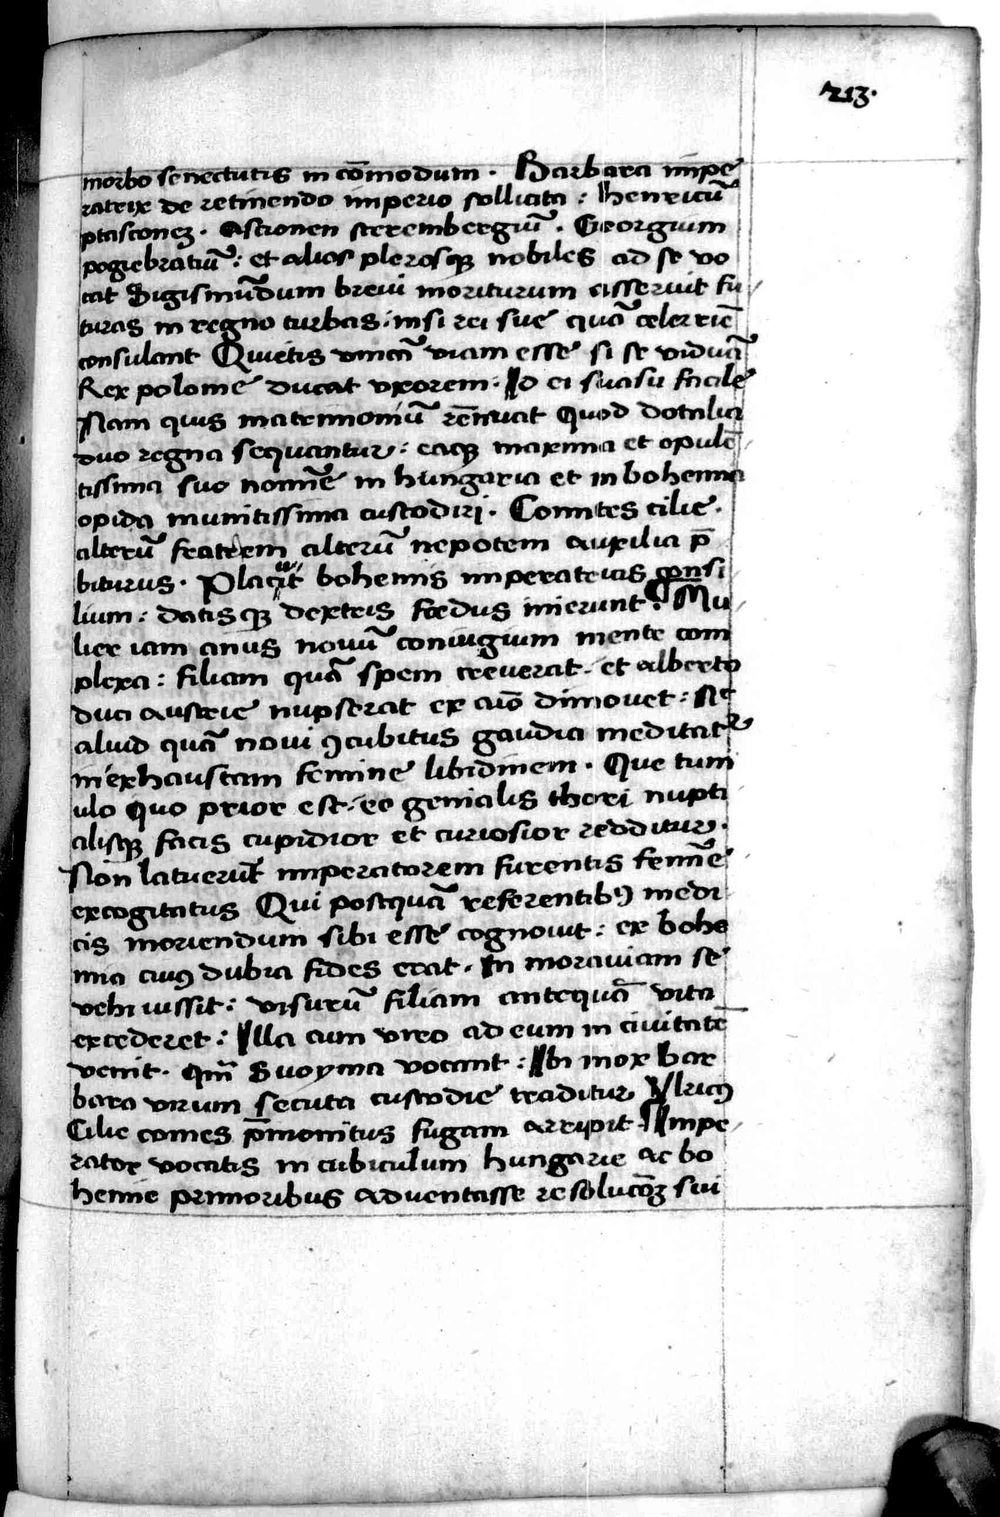 213.
morbo senectutis in cōmodum. Barbara impe
ratrix de retinendo imperio sollicita : henricū
ptasconeꝫ. Astionen sterembergiū. Georgium
pogiebratiū : et alios plerosqꝫ nobiles ad se vo
cat Sigismūdum brevi moriturum asseruit fu
turas in regno turbas. nisi rei sue quā celerrie
consulant Quietis unicā viam esse si se viduā
Rex polonie ducat uxorem. Id ei suasu facile
Nam quis matrimoniū rēnuat Quod dotalia
duo regna sequantur : eaqꝫ maxima et opulē
tissima suo nomīe in hungaria et in bohemia
opida munitissima custodiri. Comites cilie.
alterū fratrem alterū nepotem auxilia p̄
biturus. Placuit bohemis imperatricis consi
lium : datisqꝫ dextris fœdus inierunt. Mu
lier iam anus novū coniugium mente com
plexa : filiam quā spem creverat. et alberto
duci austrie nupserat ex aīo dimovet : Nec
aliud quā novi ꝯcubitus gaudia meditatr
inexhaustam femine libidinem. Que tum
ulo quo prior est. eo genialis thori nupti
alisqꝫ facis cupidior et curiosior redditur.
Non latuerūt imperatorem furentis femīe
excogitatus Qui postquā referentibꝰ medi
cis moriendum sibi esse cognovit : ex bohe
mia cuiꝰ dubia fides erat. In moraviam se
vehi iussit : visurū filiam antequā vita
excederet : Illa cum viro ad eum in civitatē
venit. quā Suoyma vocant : Ibi mox bar
bara virum secuta custodie traditur Vlricꝰ
Cilie comes p̄monitus fugam arripit. Impe
rator vocatis in cubiculum hungarie ac bo
hemie primoribus adventasse resolucōeꝫ sui